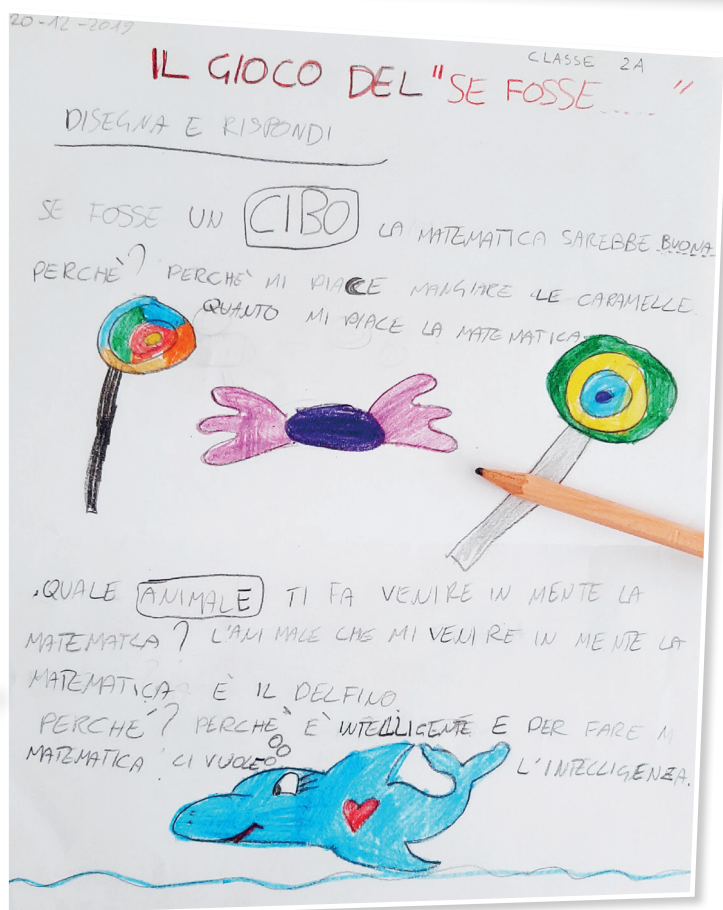 20-12-2019
CLASSE 2A
IL GIOCO DEL "SE FOSSE ...... "
DISEGNA E RISPONDI
SE FOSSE UN CIBO LA MATEMATICA SAREBBE BUONA
PERCHÈ? PERCHÈ MI PIACE MANGIARE LE CARAMELLE
QUANTO MI PIACE LA MATEMATICA.
.QUALE ANIMALE TI FA VENIRE IN MENTE LA
MATEMATICA? L'ANIMALE CHE MI VENIRE IN MENTE LA
MATEMATICA È IL DELFINO
PERCHÈ? PERCHÈ È INTELLIGENTE E PER FARE M
MATEMATICA CI VUOLE L'INTELLIGENZA.